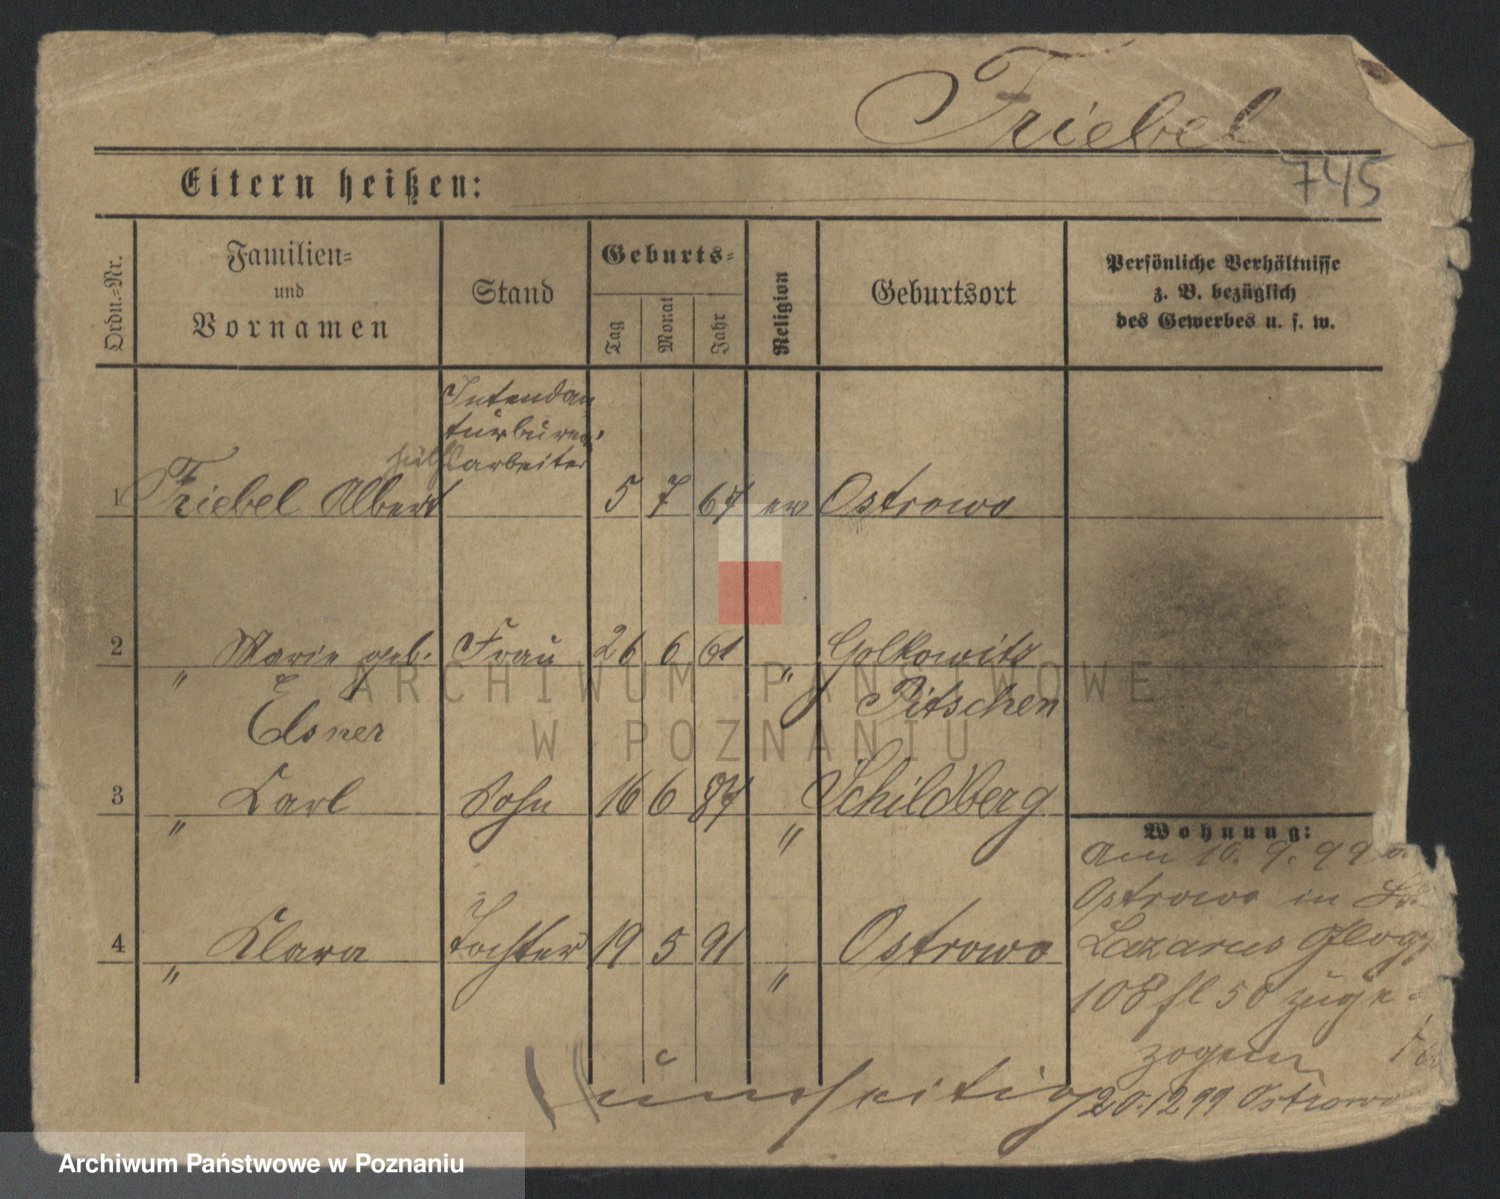 Friebel
745
Eltern heißen:
Ordn.=Nr.
Familien=
und
Vornamen
Stand
Geburts=
Tag
Monat
Jahr
Religion
Geburtsort
Persönliche Verhältnisse
z. B. bezüglich
des Gewerbes u. s. w.
Intendan
turbureau
hülfsarbeiter
1 Friebel Albert 5 7 67 ev Ostrowo
2 " Marie geb. Frau 26 6 61 " Golkowitz
Elsner Pitschen
3 " Carl Sohn 16 6 87 " Schildberg
Wohnung:
Am 16. 9. 99
Ostrowo in St.
4 " Klara Tochter 19 5 91 " Ostrowo
Lazarus Glog
108 fl 50 zuge
zogen
umseitig
20.12 99 Ostrowo
ARCHIWUM PAŃSTWOWE
W POZNANIU
Archiwum Państwowe w Poznaniu